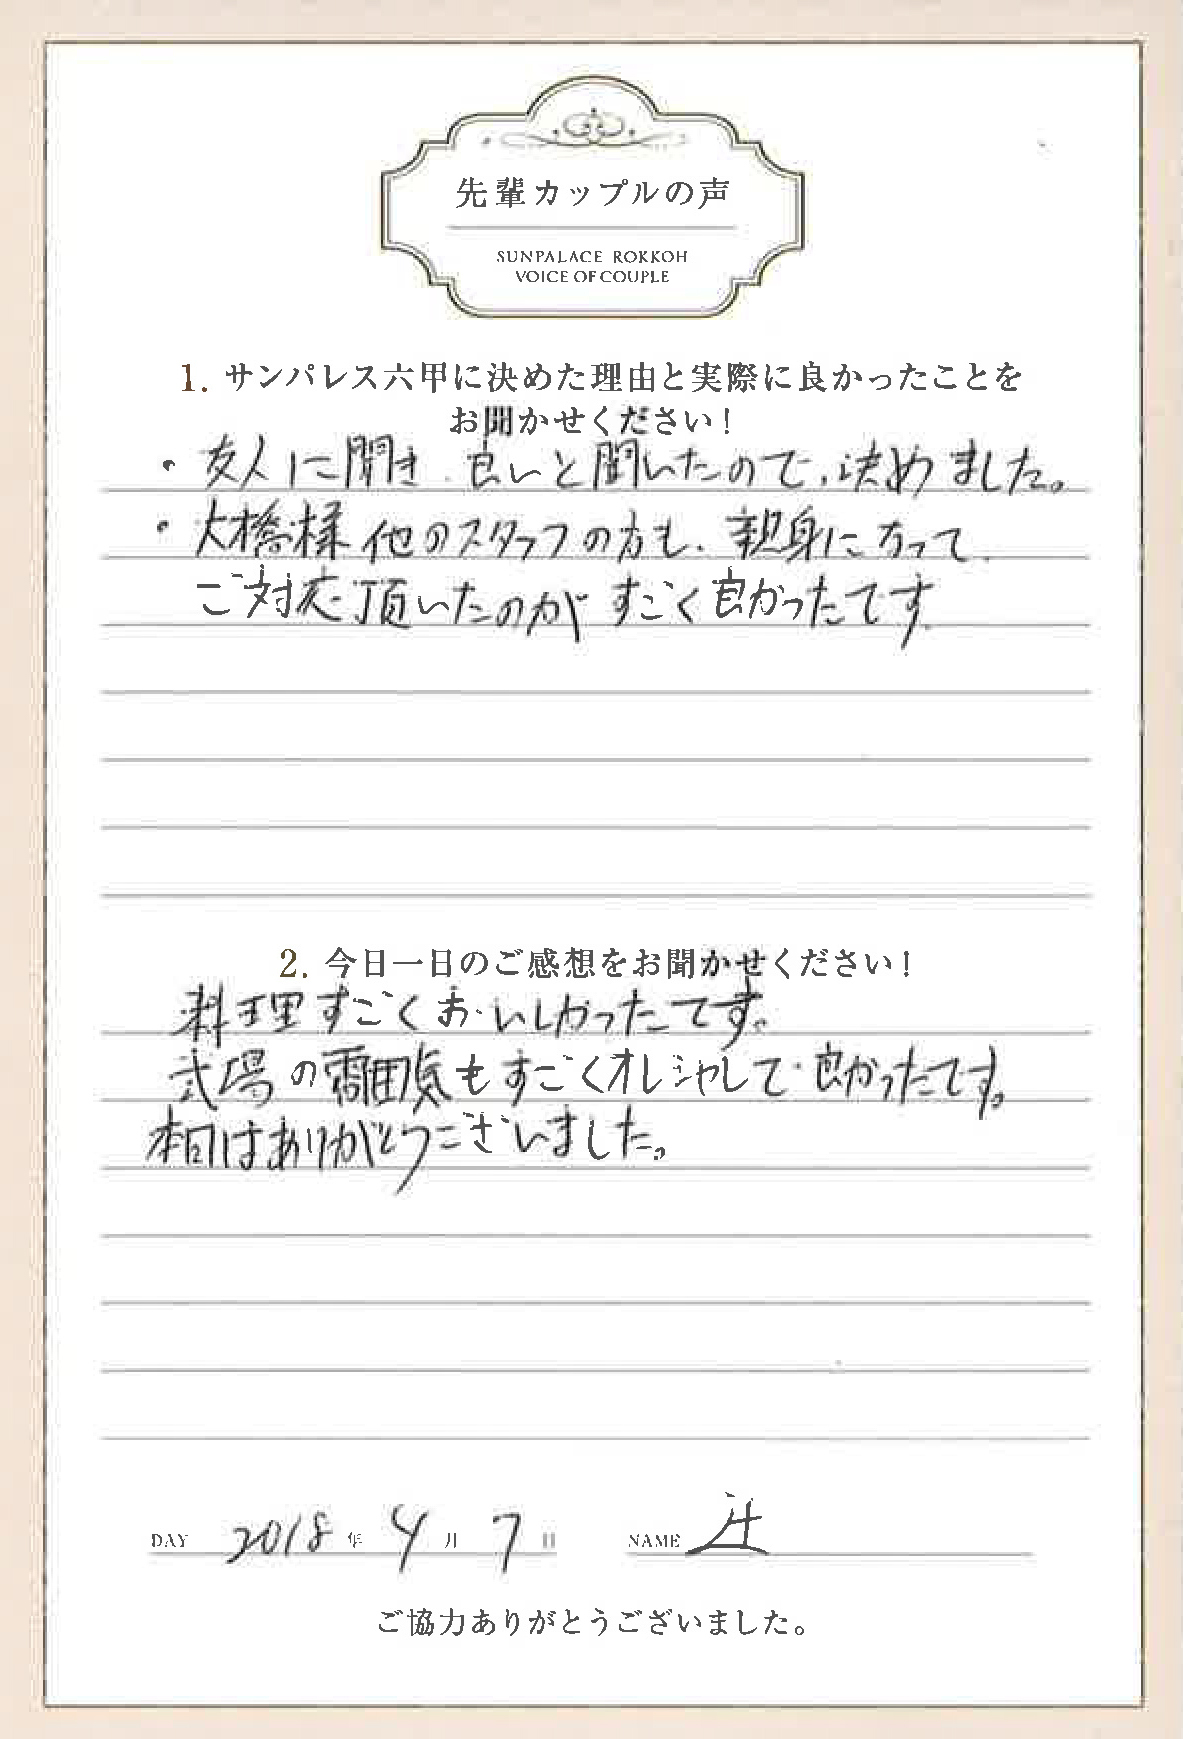 先輩カップルの声
SUNPALACE ROKKOH
VOICE OF COUPLE
1. サンパレス六甲に決めた理由と実際に良かったことを
お聞かせください!
・友人に聞き、良いと聞いたので、決めました。
・大橋様他のスタッフの方も、親身になって
ご対応頂いたのがすごく良かったてす
2. 今日一日のご感想をお聞かせください!
料理すごくおいしかったてす。
式場の雰囲気もすごくオシャレで良かったてす。
本日はありがとうございました。
DAY 2018 年 4 月 7 日 NAME 辻
ご協力ありがとうございました。